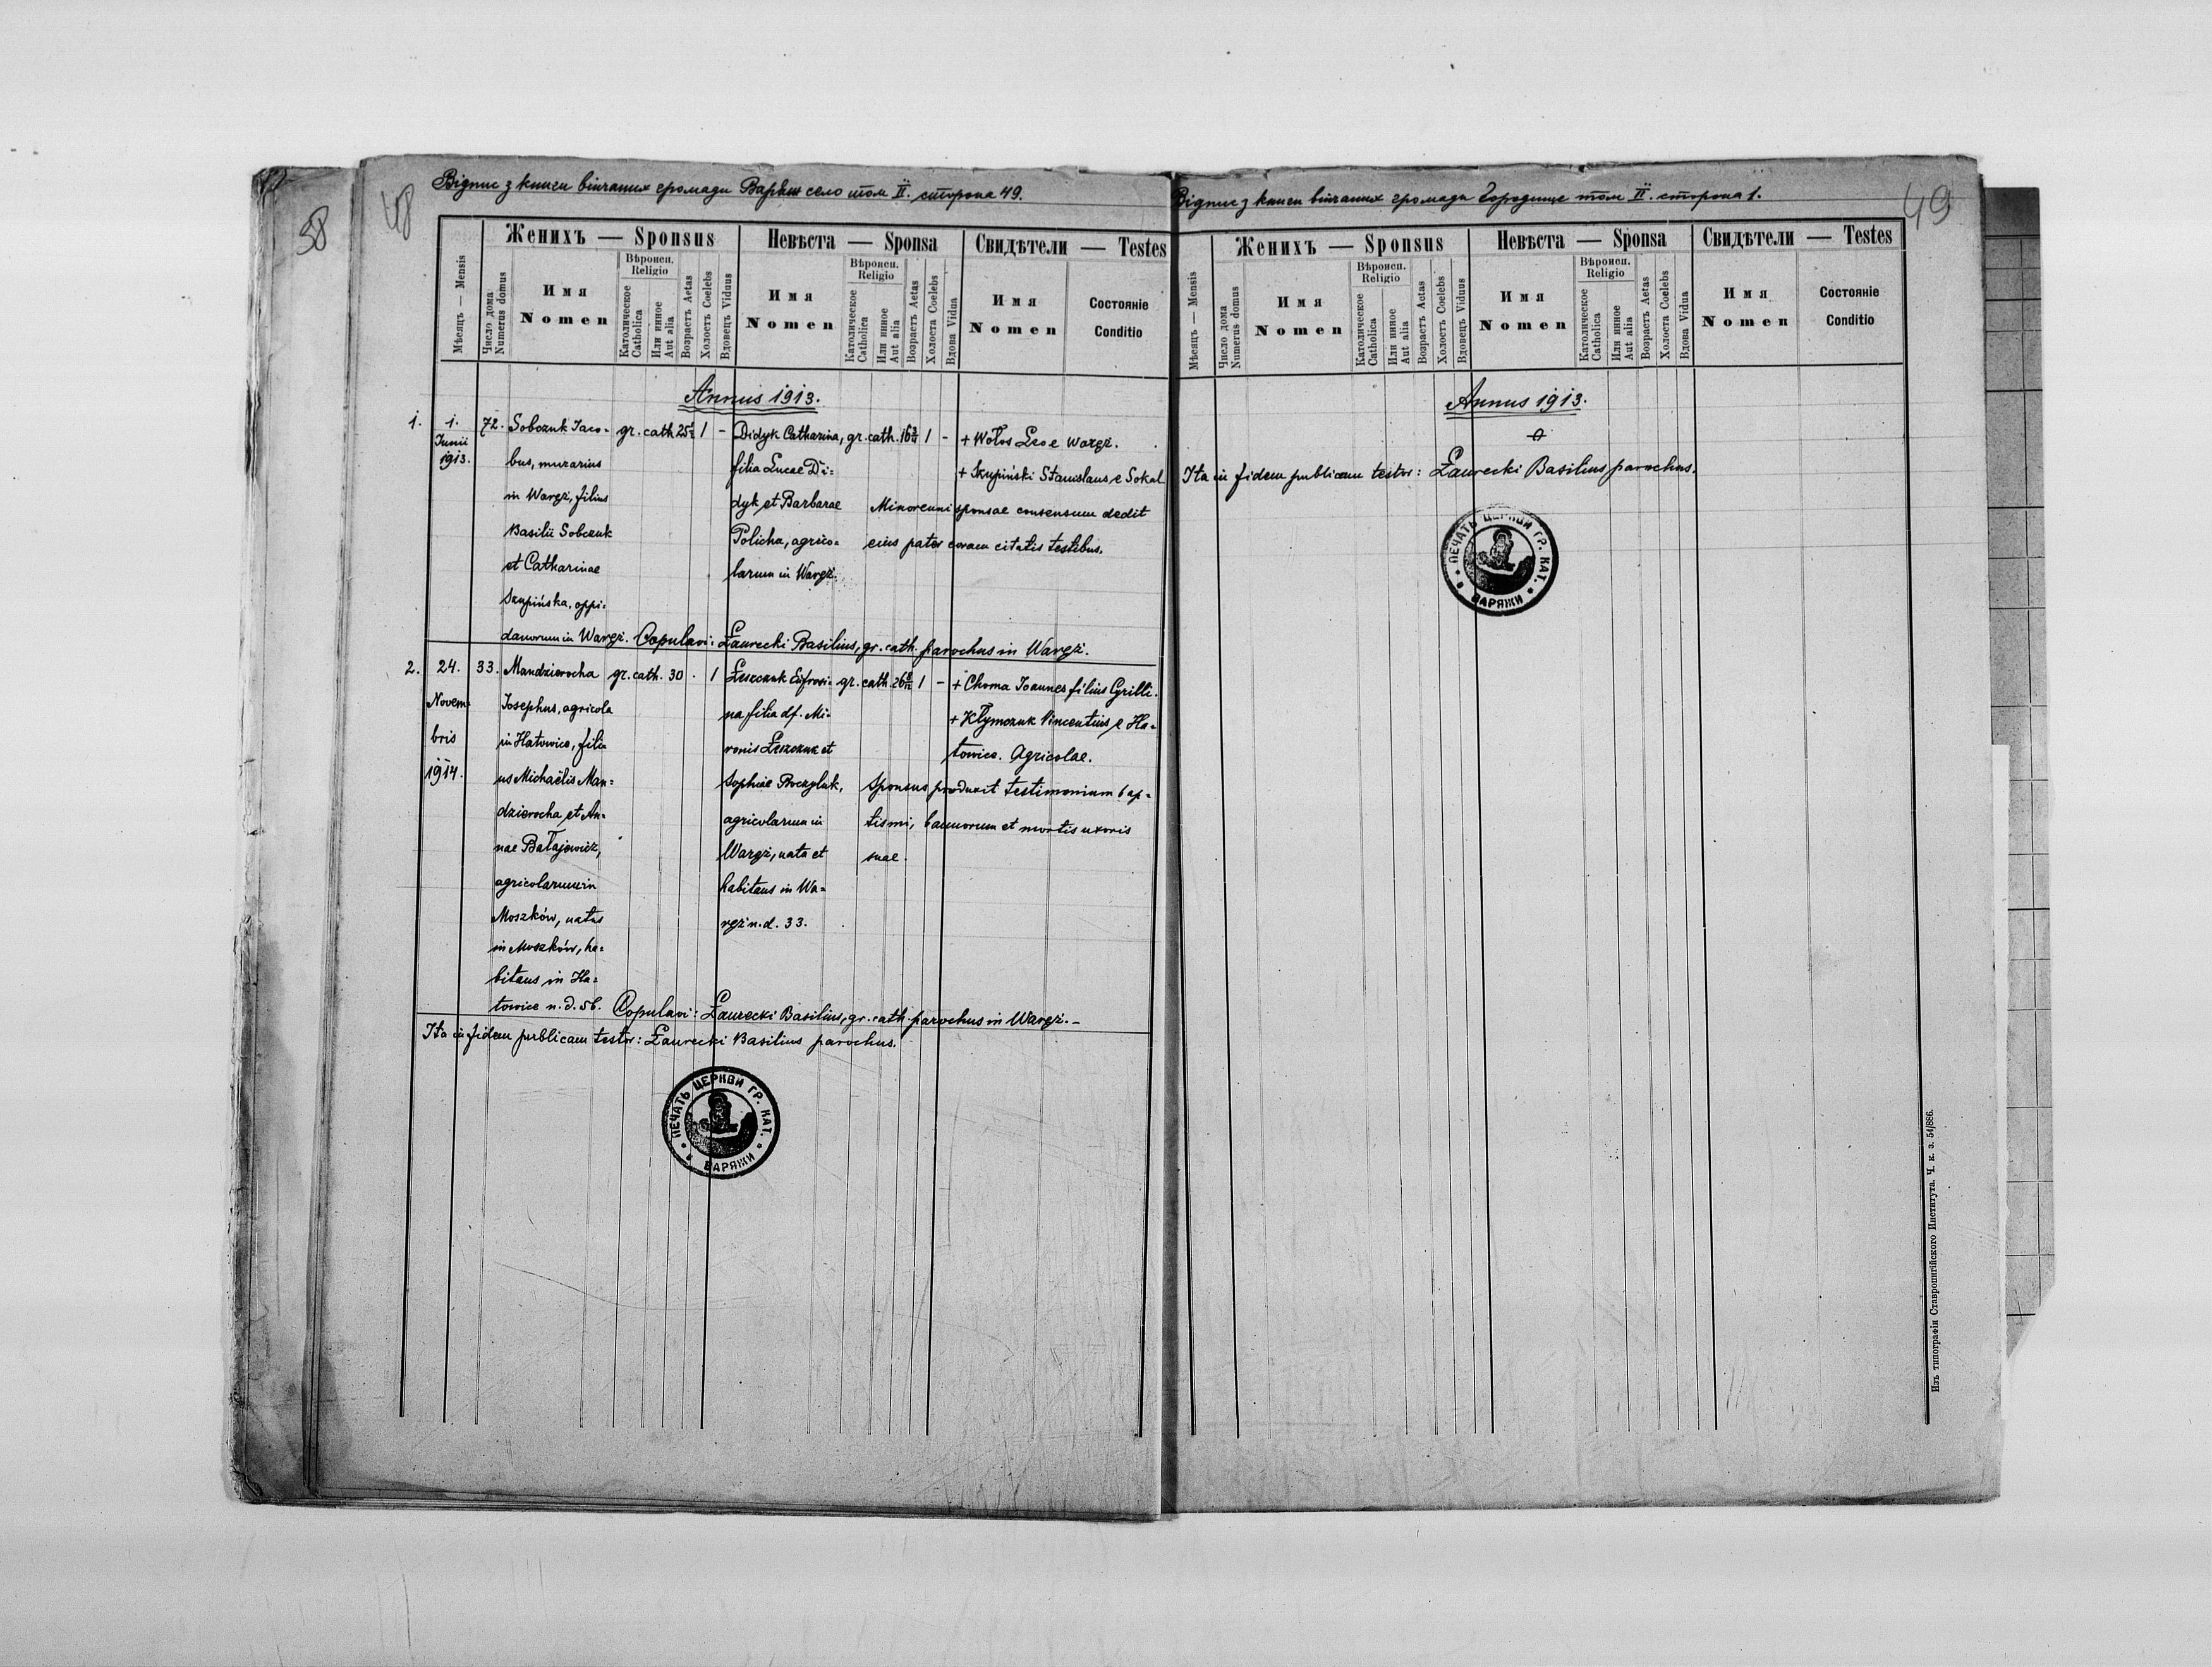 58
48
Відпис з книги вінчаних громади Варяж село том II. сторона 49.
Женихъ — Sponsus
Невѣста — Sponsa
Свидѣтели — Testes
Мѣсяцъ — Mensis
Число дома
Numerus domus
Имя
Nomen
Вѣроисп.
Religio
Католическое
Catholica
Или инное
Aut alia
Возрастъ Aetas
Холостъ Coelebs
Вдовецъ Viduus
Имя
Nomen
Вѣроисп.
Religio
Католическое
Catholica
Или инное
Aut alia
Возрастъ Aetas
Холоста Coelebs
Вдова Vidua
Имя
Nomen
Состояніе
Conditio
Annus 1913.
1. 1. 72. Sobczuk Jaco- gr. cath. 1 - Didyk Catharina, gr. cath. 1 - + Wołos Leo e Wargż.
Junii
1913. bus, murarius filia Lucae Di= + Skupiński Stanislaus, e Sokal
in Wargż, filius dyk et Barbarae Minorenni sponsae consensum dedit
Basilii Sobczuk Policha, agrico= eius pater coram citatis testibus.
et Catharinae larum in Wargż.
Skupińska, oppi=
danorum in Wargż. Copulavi: Ławrecki Basilius, gr. cath. parochus in Wargż.
2. 24. 33. Mandzierocha gr. cath. 30 . 1 Łeszczuk Eufrosi= gr. cath. 1 - + Choma Joannes filius Cyrilli.
Novem= Josephus, agricola na filia df. Mi= + Kłymczuk Vincentius, e Ha=
bris in Hatowice, fili= ronis Łeszczuk et towice. Agricolae.
1914. us Michaëlis Man= Sophiae Sponsus produxit testimonium bap=
dzierocha et An= agricolarum in tismi, bannorum et mortis uxoris
nae Bałajewicz, Wargż, nata et suae.
agricolarum in habitans in Wa=
Moszków, natus rgż n. d. 33.
in Moszków, ha=
bitans in Ha=
towice n. d. 56. Copulavi: Ławrecki Basilius, gr. cath. parochus in Wargż. -
Ita in fidem publicam testor: Ławrecki Basilius parochus.
ПЕЧАТЬ ЦЕРКВИ ГР. КАТ.
ВАРЯЖИ
49
Відпис з книги вінчаних громади Городище том II. сторона 1.
Женихъ — Sponsus
Невѣста — Sponsa
Свидѣтели — Testes
Мѣсяцъ — Mensis
Число дома
Numerus domus
Имя
Nomen
Вѣроисп.
Religio
Католическое
Catholica
Или инное
Aut alia
Возрастъ Aetas
Холостъ Coelebs
Вдовецъ Viduus
Имя
Nomen
Вѣроисп.
Religio
Католическое
Catholica
Или инное
Aut alia
Возрастъ Aetas
Холоста Coelebs
Вдова Vidua
Имя
Nomen
Состояніе
Conditio
Annus 1913.
Ita in fidem publicam testor: Ławrecki Basilius parochus.
ПЕЧАТЬ ЦЕРКВИ ГР. КАТ.
ВАРЯЖИ
Изъ типографіи Ставропигійского Института. Ч. к. з. 54/886.